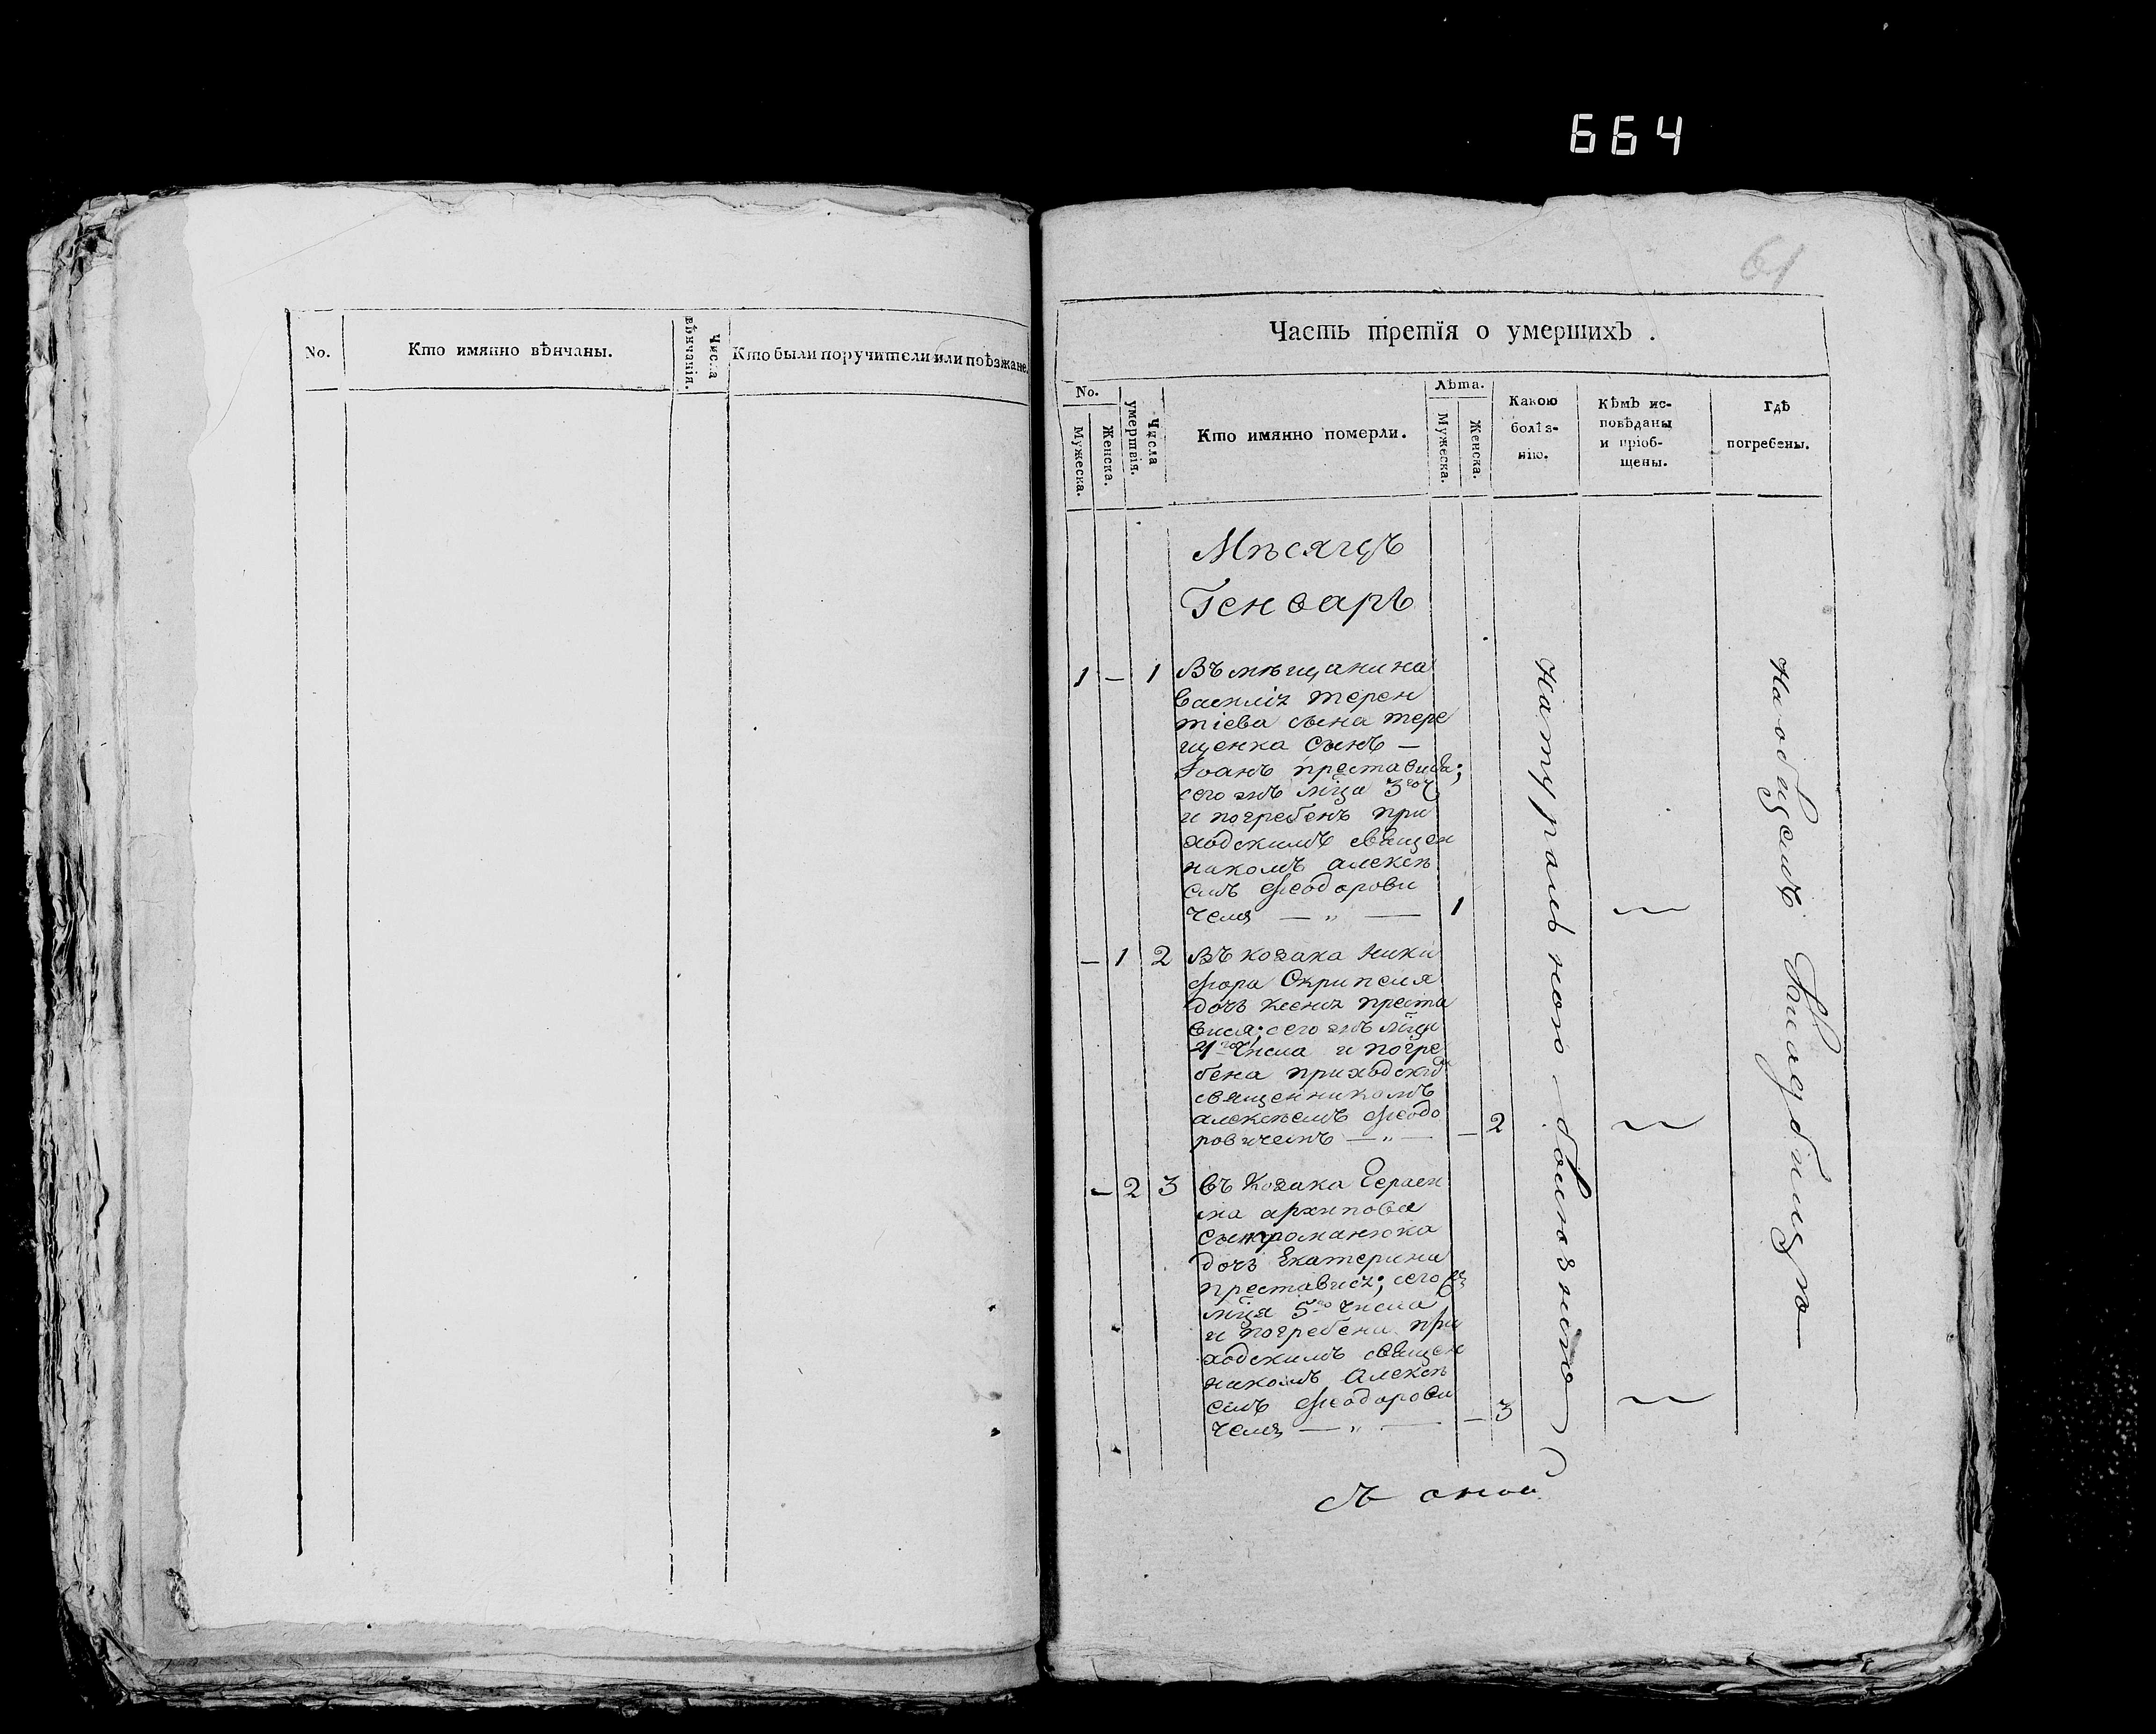 664
61
No.
Кто имянно вѣнчаны.
Числа
вѣнчанія.
Кто были поручители или поѣзжане.
Часть третія о умершихъ .
No.
Мужеска.
Женска.
Числа
умертвія.
Кто имянно померли.
Лѣта.
Мужеска.
Женска.
Какою
болѣз-
нію.
Кѣмъ ис-
повѣданы
и пріоб-
щены.
Гдѣ
погребены.
Мѣсяцъ
Генварь
1 — 1 Въ мѣщанина
Василія терен
тіева сына тере
щенка сынъ —
Іоанъ преставися;
сего жъ мца 3го ч
и погребенъ при
ходскимъ священ
никомъ алексѣ
емъ Феодорови
чемъ — „ — 1
— 1 2 Въ козака ники
фора
дочь Ксенія преста
вися; сего жъ мца
4го числа и погре
бена приходским
священникомъ
алексѣемъ Феодо
ровичемъ — „ — — 2
— 2 3 Въ Козака Гераси
ма архипова
сына романюка
дочь Екатерина
преставися; сего ж
мца 5го числа
и погребена при
ходскимъ священ
никомъ Алексѣ
емъ Феодорови
чемъ — „ — — 3
Натуральною болѣзнію
На общемъ Кладбищѣ
съ оной